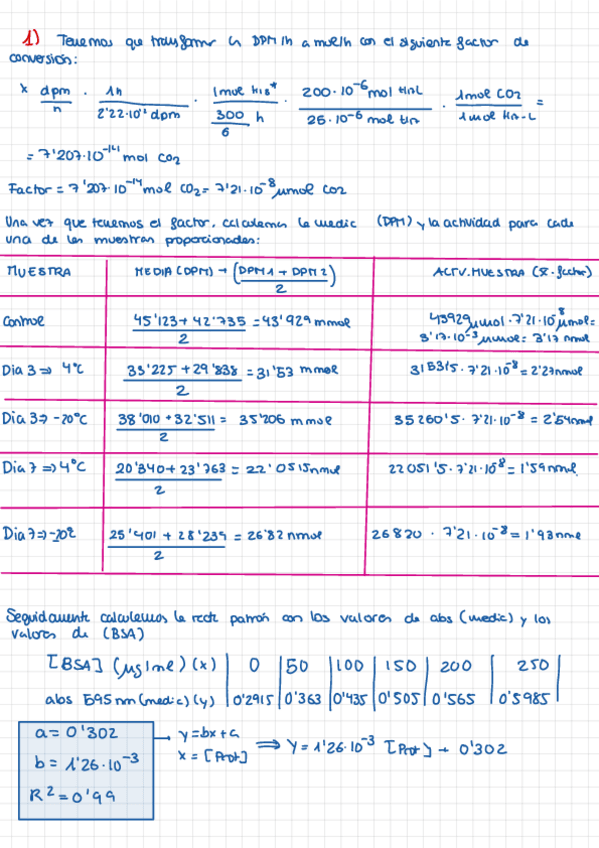 1) Tenemos que transformar la DPM/h a mol/h con el siguiente factor de
conversión:
x dpm/h · 1h/2'22·10¹² dpm · 1mol His*/(300/6) h · 200·10⁻⁶ mol His-L/25·10⁻⁶ mol His · 1mol CO2/1mol His-L =
= 7'207·10⁻¹⁴ mol CO2
Factor = 7'207·10⁻¹⁴ mol CO2 = 7'21·10⁻⁸ μmol CO2
Una vez que tenemos el factor, calculamos la media (DPM) y la actividad para cada
una de las muestras proporcionadas:
MUESTRA MEDIA (DPM) → (DPM1 + DPM2)/2 ACTV. MUESTRA (x̄ · factor)
Control 45'123 + 42'735/2 = 43'929 mmol 43929 μmol · 7'21·10⁻⁸ μmol =
3'17·10⁻³ μmol = 3'17 nmol
Dia 3 ⇒ 4°C 33'225 + 29'838/2 = 31'53 mmol 31531'5 · 7'21·10⁻⁸ = 2'27nmol
Dia 3 ⇒ -20°C 38'010 + 32'511/2 = 35'206 mmol 35260'5 · 7'21·10⁻⁸ = 2'54nmol
Dia 7 ⇒ 4°C 20'340 + 23'763/2 = 22'0515nmol 22051'5 · 7'21·10⁻⁸ = 1'59nmol
Dia 7 ⇒ -20º 25'401 + 28'239/2 = 26'82 nmol 26820 · 7'21·10⁻⁸ = 1'93nm
Seguidamente calculamos la recta patrón con los valores de abs (media) y los
valores de (BSA)
[BSA] (μg/ml) (x) 0 50 100 150 200 250
abs 595nm (media) (y) 0'2915 0'363 0'435 0'505 0'565 0'5985
a = 0'302
b = 1'26·10⁻³
R² = 0'99
y = bx + a
x = [Prot]
⇒ Y = 1'26·10⁻³ [Prot] + 0'302